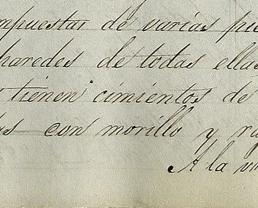 mpuestas de varias pie
paredes de todas ellas
tienen cimientos de
con morillo y
A la